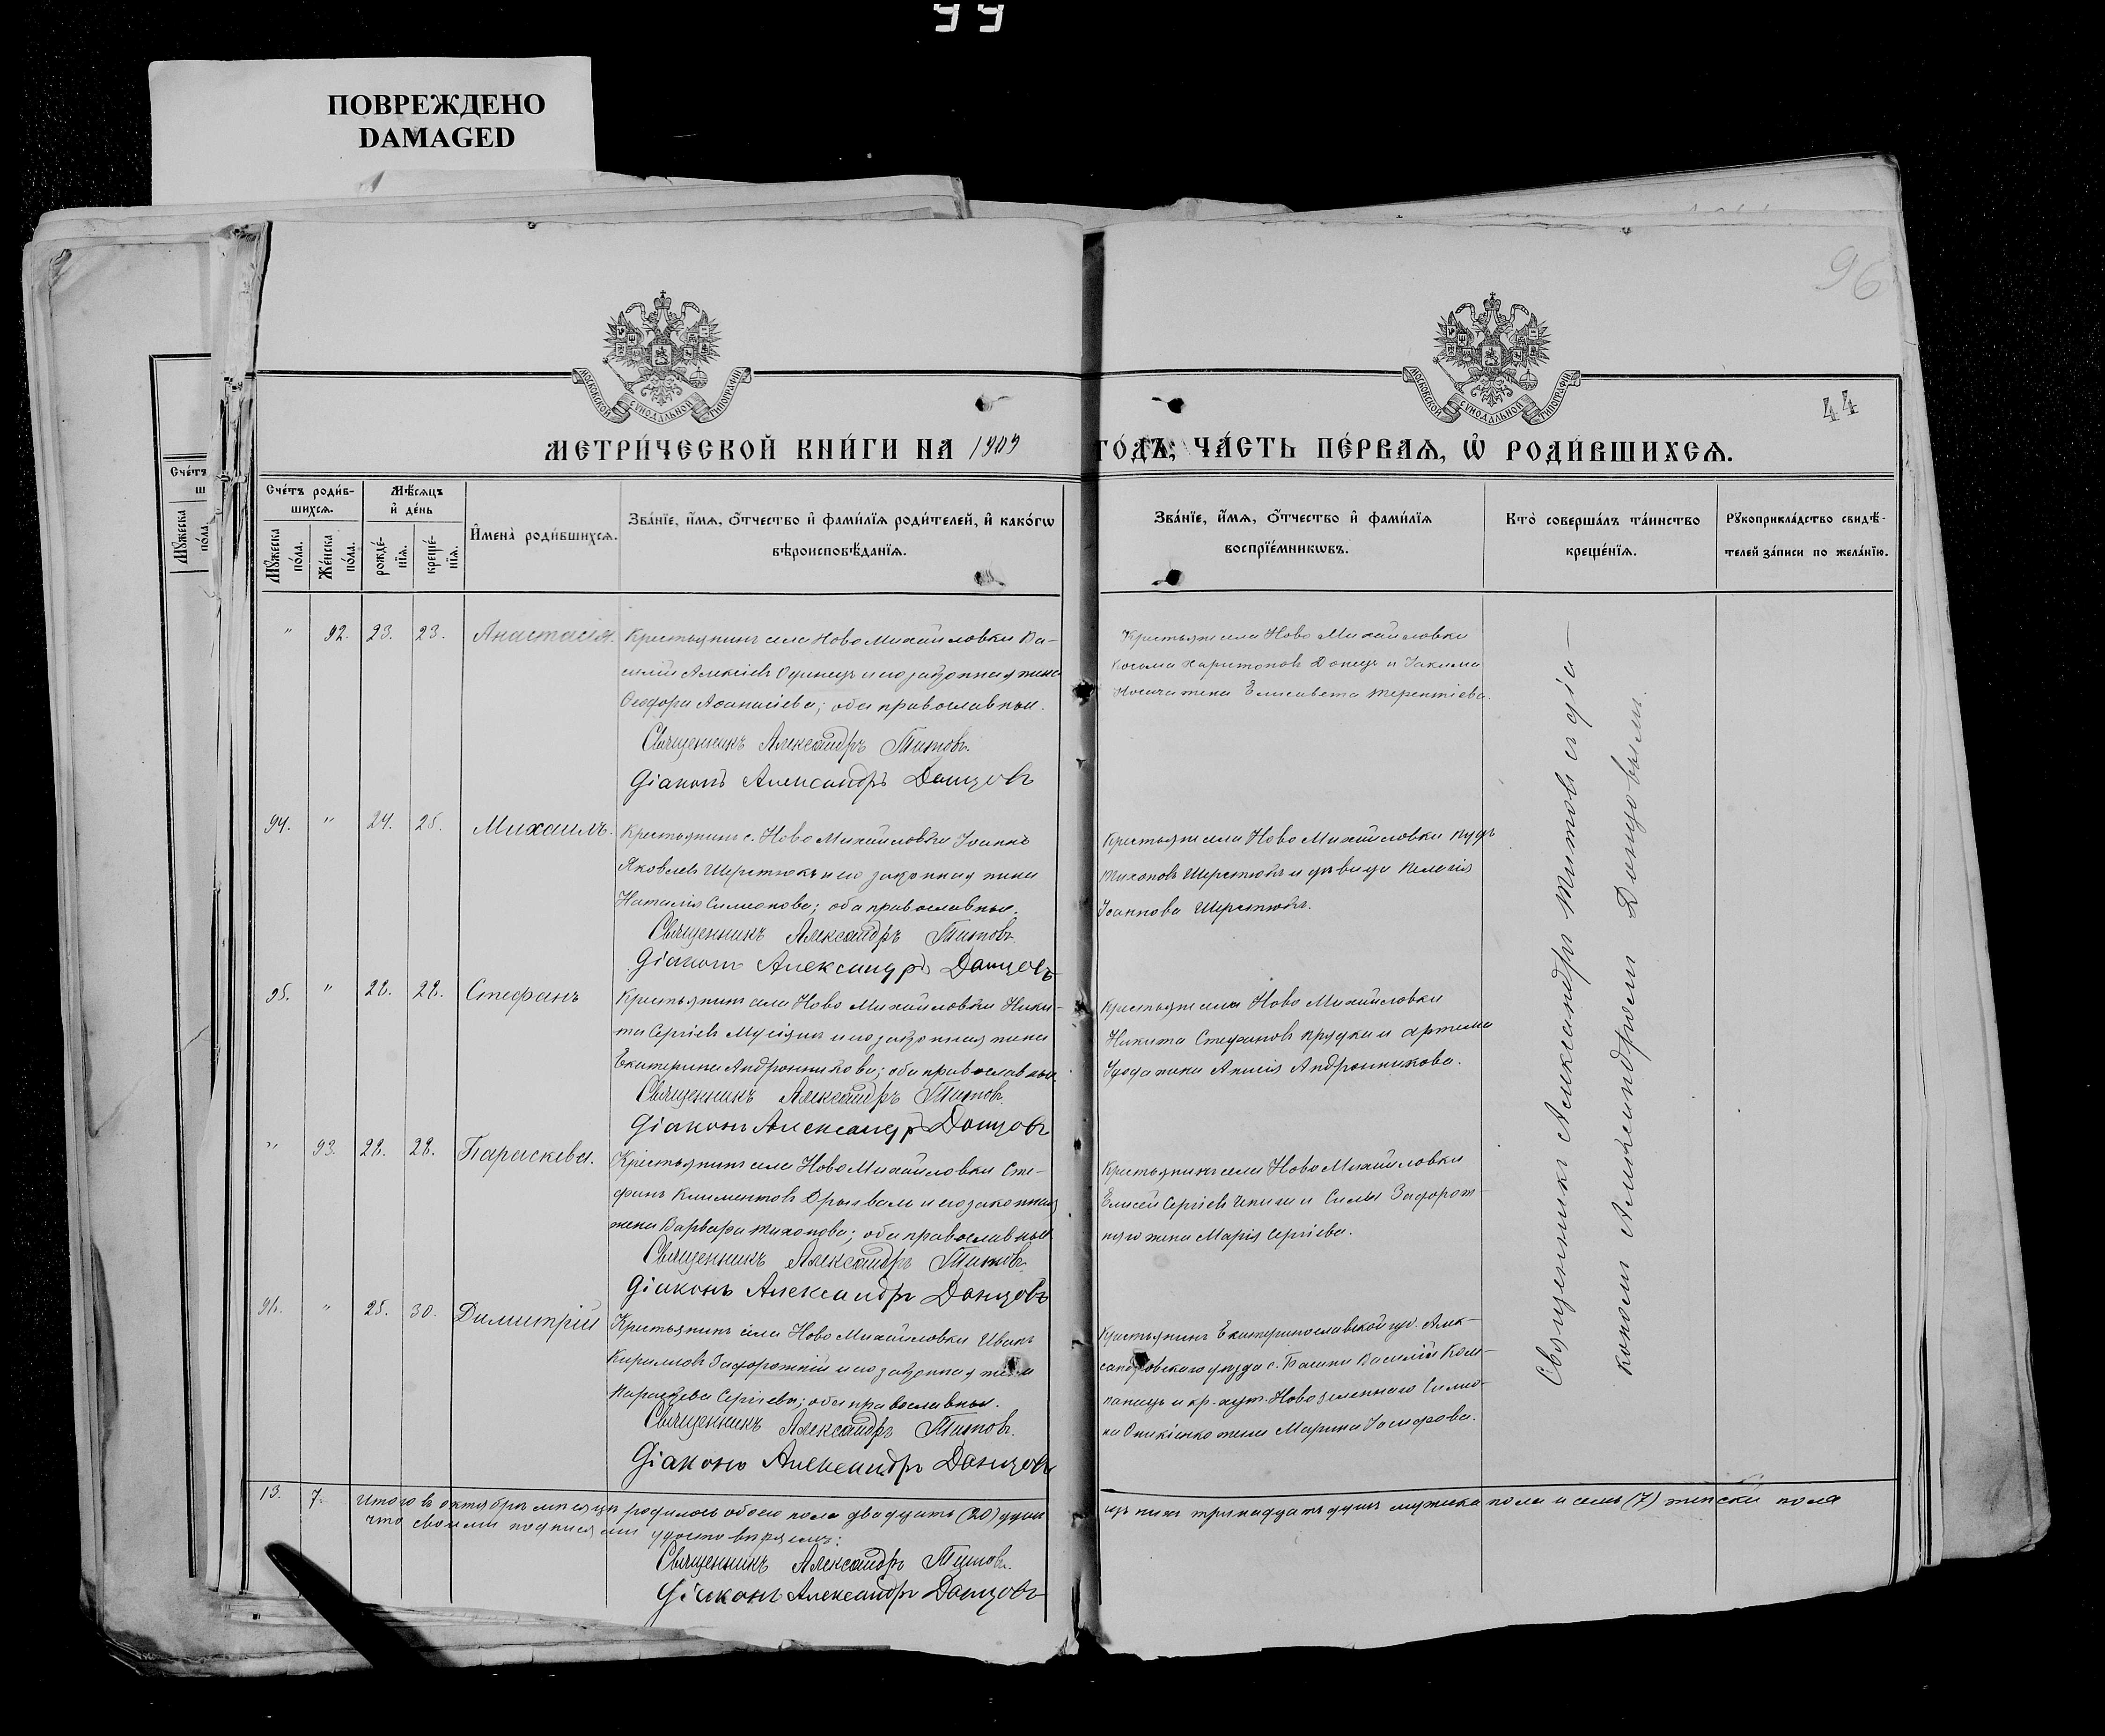 99
ПОВРЕЖДЕНО
DAMAGED
96
44
МОСКОВСКОЙ СУНОДАЛЬНОЙ ТИПОГРАФІИ
МОСКОВСКОЙ СУНОДАЛЬНОЙ ТИПОГРАФІИ
МЕТРИ́ЧЕСКОЙ КНИ́ГИ НА 1909 ГО́ДЪ, ЧА́СТЬ ПЕ́РВАѦ, Ѡ҆ РОДИ́ВШИХСѦ.
Сче́тъ
ш
Мꙋ́жеска по́ла.
Сче́тъ роди́в-
шихсѧ.
Мꙋ́жеска по́ла.
Же́нска по́ла.
Мѣ́сѧцъ
и҆ де́нь
рожде́-
нїѧ.
креще́-
нїѧ.
И҆мена̀ роди́вшихсѧ.
Зва́нїе, и҆́мѧ, ѻ҆́тчество и҆ фами́лїѧ роди́телей, и҆ како́гѡ
вѣроисповѣ́данїѧ.
Зва́нїе, и҆́мѧ, ѻ҆́тчество и҆ фами́лїѧ
воспрїе́мникѡвъ.
Кто̀ соверша́лъ та́инство
креще́нїѧ.
Рꙋкоприкла́дство свидѣ́-
телей за́писи по жела́нїю.
" 92. 23. 23. Анастасія. Крестьянинъ села Ново Михайловки Ва-
силій Алексіевъ Одинецъ и его законная жена
Ѳеодора Аѳанасіева; оба православные.
Священникъ Александръ Титовъ.
Діаконъ Александръ Донцовъ
Крестьяне села Ново Михайловки
Косьма Харитоновъ Донецъ и Іакима
жена Елисавета Терентіева.
94. " 24. 25. Михаилъ. Крестьянинъ с. Ново Михайловки Іоаннъ
Яковлевъ Шерстюкъ и его законная жена
Наталія Симеонова; оба православные.
Священникъ Александръ Титовъ.
Діаконъ Александръ Донцовъ
Крестьяне села Ново Михайловки
Тихоновъ Шерстюкъ и дѣвица Пелагія
Іоаннова Шерстюкъ.
95. " 28. 28. Стефанъ Крестьянинъ села Ново Михайловки Ники-
та Сергіевъ и его законная жена
Екатерина Андронникова; оба православные.
Священникъ Александръ Титовъ.
Діаконъ Александръ Донцовъ
Крестьяне села Ново Михайловки
Никита Стефановъ и Артема
жена Анисія Андронникова.
" 93. 28. 28. Параскева. Крестьянинъ села Ново Михайловки Сте-
фанъ Климентовъ и его законная
жена Варвара Тихонова; оба православные
Священникъ Александръ Титовъ.
Діаконъ Александръ Донцовъ
Крестьянинъ села Ново Михайловки
Елисей Сергіевъ и Силы Задорож-
няго жена Марія Сергіева.
96. " 25. 30. Димитрій Крестьянинъ села Ново Михайловки Иванъ
Кирилловъ Задорожній и его законная жена
Параскева Сергіева; оба православные.
Священникъ Александръ Титовъ.
Діаконъ Александръ Донцовъ
Крестьянинъ Екатеринославской губ. Алек-
сандровскаго уѣзда с. Василій Ком-
панецъ и кр. хут. Ново Симео-
на жена Марина Іосифова.
Священникъ Александръ Титовъ съ діа-
кономъ Александромъ Донцовымъ.
13. 7. Итого въ октябрѣ мѣсяцѣ родилось обоего пола двадцать (20) душъ изъ нихъ тринадцать душъ мужеска пола и семь (7) женска пола
что своими подписями удостовѣряемъ:
Священникъ Александръ Титовъ.
Діаконъ Александръ Донцовъ